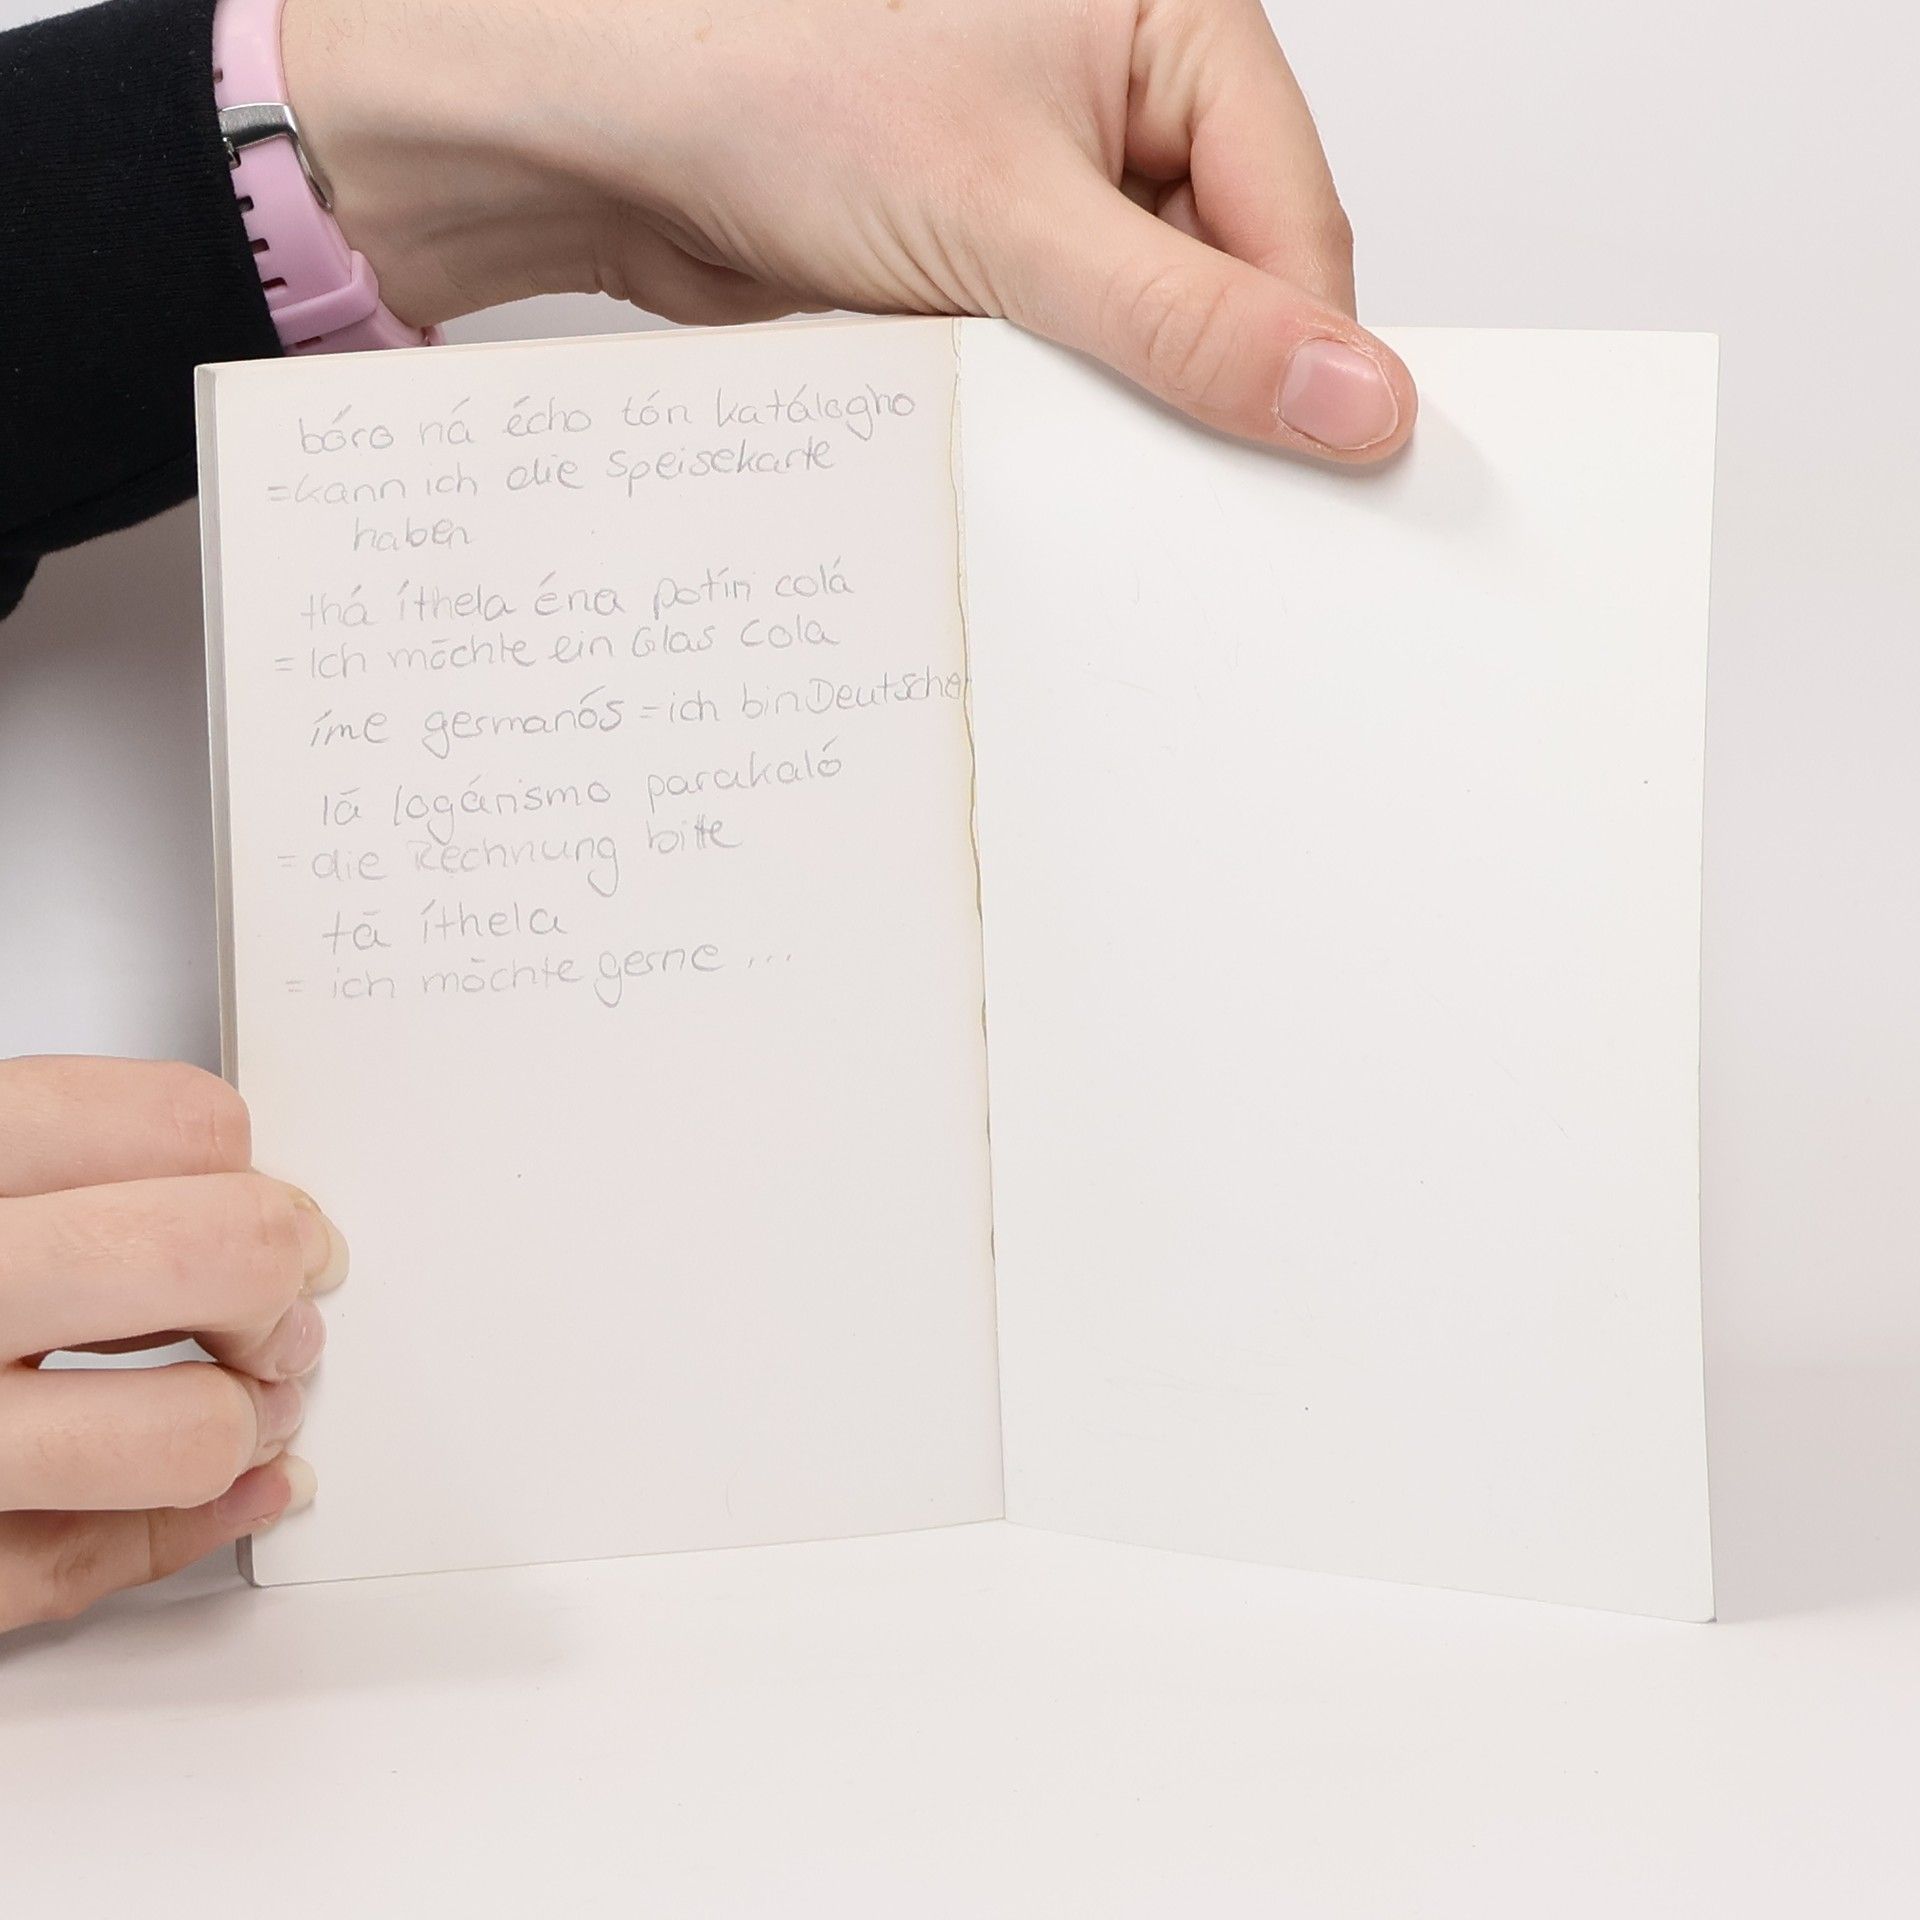 bóro ná écho tón katálogho
=kann ich die Speisekarte
haben
thá íthela éna potín colá
= Ich möchte ein Glas Cola
íme germanós = ich bin Deutscher
lā logárismo parakaló
= die Rechnung bitte
tā íthela
= ich möchte gerne ...